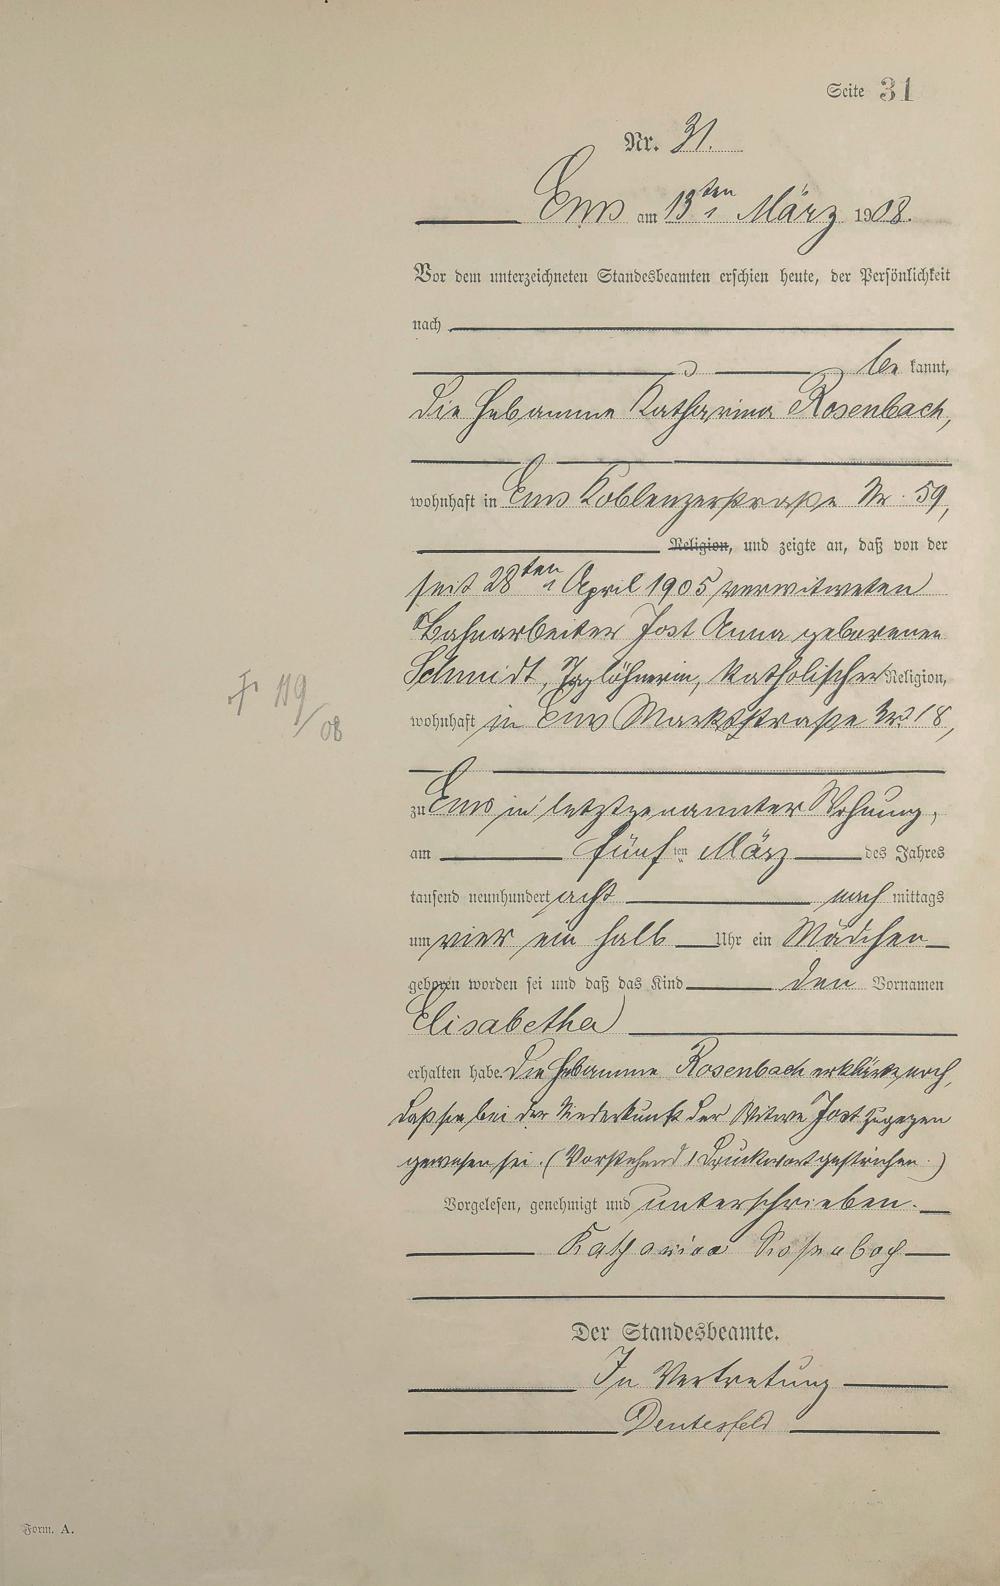 Seite 31
Nr. 31.
Ems am 13ten März 1908.
Vor dem unterzeichneten Standesbeamten erschien heute, der Persönlichkeit
nach
be kannt,
die Hebamme Katharina Rosenbach,
wohnhaft in Ems Koblenzerstraße Nr. 59,
Religion, und zeigte an, daß von der
seit 28ten April 1905 verwitweten
Bahnarbeiter Jost Anna geborenen
Schmidt, Taglöhnerin, katholischer Religion,
wohnhaft in Ems Marktstraße Nr. 18,
zu Ems in letztgenannter Wohnung,
am fünften März des Jahres
tausend neunhundert acht nach mittags
um vier ein halb Uhr ein Mädchen
geboren worden sei und daß das Kind den Vornamen
Elisabetha
erhalten habe. Die Hebamme Rosenbach erklärte noch,
daß sie bei der Niederkunft der Witwe Jost zugegen
gewesen sei. (Vorstehend 1 Druckwort gestrichen.)
Vorgelesen, genehmigt und unterschrieben.
Katharina Rosenbach
Der Standesbeamte.
In Vertretung
119/08
Form. A.